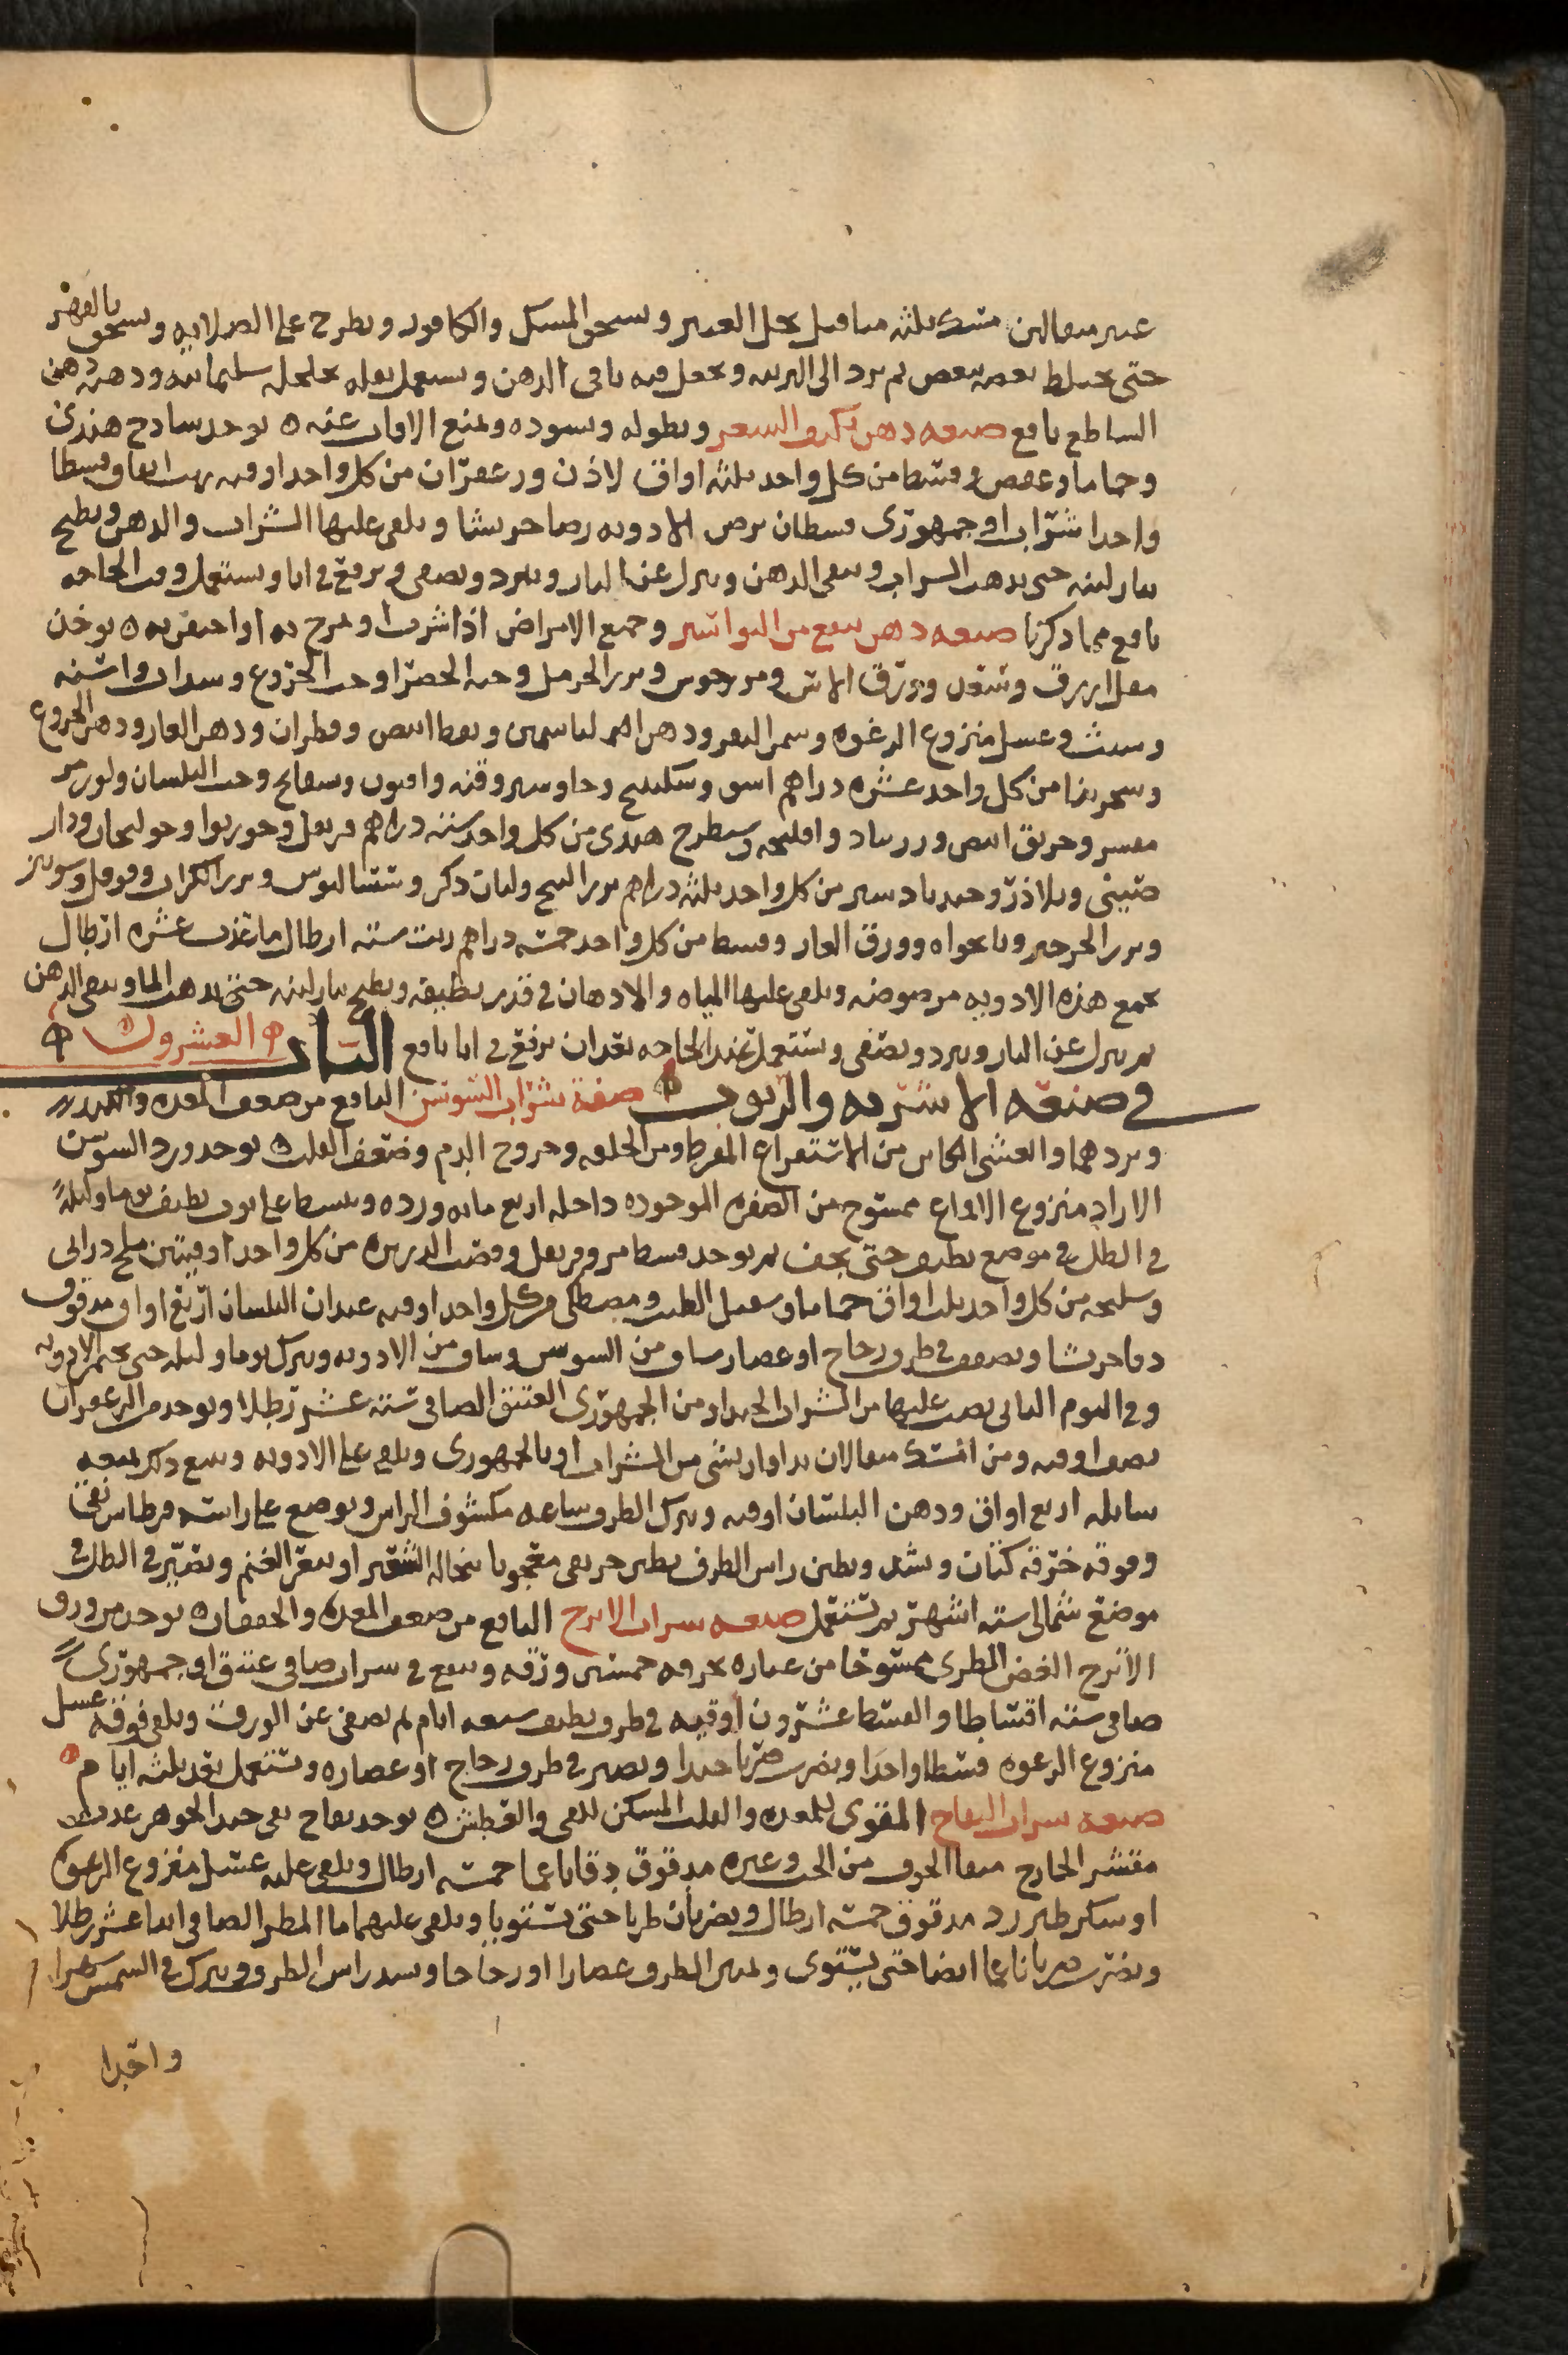 عنبر مثقالين مسك ثلثه مثاقيل يحل العنبر ويسحق المسك والكافور ويطرح على الصلايه ويسحق بالفهر
حتى يختلط بعضه ببعض ثم يرد الى البرنيه ويجعل فيه باقى الدهن ويستعمل سليمانيه ودهنه دهن
الساطع نافع صنعه دهن يكثر الشعر ويطوله ويسوده ويمنع الافات عنه ه يوخذ سادج هندى
وحماما وعفص وقسط من كل واحد ثلثه اواق لاذن وزعفران من كل واحد اوقيه زيت انفاق قسطا
واحدا شراب او جمهورى قسطان يرض الادويه رضا جريشا ويلقى عليها الشراب والدهن ويطبخ
بنار لينه حتى يذهب الشراب ويبقى الدهن وينزل عن النار ويبرد ويصفى ويرفع فى انا ويستعمل وقت الحاجه
نافع مما ذكرنا صنعه دهن ينفع من البواسير وجميع الامراض اذا شرب او مرخ به او احتقن به ه يوخذ
مقل ازرق وسعد وورق الاس ومرزجوش وبزر الحرمل وحبه الخضرا وحب الخروع وسداب واشنه
وشبث وعسل منزوع الرغوه وسمن البقر ودهن الياسمين ونفط ابيض وقطران ودهن الغار ودهن الخروع
من كل واحد عشره دراهم وسكبينج وجاوشير وقنه وافيون وبسفايج وحب البلسان ولوز مر
مقشر وخربق ابيض وزرنباد وافليمه وشيطرج هندى من كل واحد سته دراهم قرنفل وجوزبوا وخولنجان ودار
صينى وبلاذر وجندبادستر من كل واحد ثلثه دراهم بزر البنج ولبان ذكر وبزر الكراث وفوفل وشونيز
وبزر الجرجير ونانخواه وورق الغار وقسط من كل واحد خمسه دراهم زيت سته ارطال ما عذب عشره ارطال
تجمع هذه الادويه مرضوضه ويلقى عليها المياه والادهان فى قدر نظيفه ويطبخ بنار لينه حتى يذهب الما ويبقى الدهن
ثم ينزل عن النار ويبرد ويصفى ويستعمل عند الحاجه بعد ان يرفع فى انا نافع الباب العشرون
فى صنعه الاشربه والربوب صفة شراب السوسن النافع من ضعف المعده والكبد
وبردهما والغشى الكاين من الاستفراغ المفرط ومن الخلفه وخروج الدم وضعف القلب ه يوخذ ورد السوسن
الازاد منزوع الاقماع ممسوح من الصفره الموجوده داخله اربع مايه ورده ويبسط على ثوب نظيف يوما وليلةً
فى الظل فى موضع نظيف حتى يجف ثم يوخذ قسط مر وقرنفل وقصب الذريره من كل واحد اوقيتين ملح درانى
وسليخه من كل واحد ثلث اواق حماما وسنبل الطيب ومصطكى من كل واحد اوقيه عيدان البلسان اربع اواق مدقوق
دقا جريشا ويصفف فى ظرف زجاج او غضار ساف من السوسن وساف من الادويه ويترك يوما وليله حتى تخمر الادويه
وفى اليوم الثانى يصب عليها من الشراب الجيد او من الجمهورى العتيق الصافى سته عشر رطلا ويوخذ من الزعفران
نصف اوقيه ومن المسك مثقالان يدافان بشى من الشراب او بالجمهورى ويلقى على الادويه ومع ذلك ميعه
سايله اربع اواق ودهن البلسان اوقيه ويترك الظرف ساعه مكشوف الراس ويوضع على راسه قرطاس نقى
وفوقه خرقه كتان ويشد ويطين راس الظرف بطين حر نقى معجونا بنخاله الشعير او بعر الغنم ويصيّر فى الظل فى
موضع شمالى سته اشهر ثم يستعمل صنعه شراب الاترج النافع من ضعف المعده والخفقان ه يوخذ من ورق
الاترج الغض الطرى ممسوحا من غباره بخرقه خمسين ورقه وينقع فى شراب صافى عتيق او جمهورى
صافى سته اقساط والقسط عشرون اوقيه فى ظرف نظيف سبعه ايام ثم يصفى عن الورق ويلقى فوقه عسل
منزوع الرغوه قسطا واحدا ويضرب ضربا جيدا ويصير فى ظرف زجاج او غضاره ويستعمل بعد ثلثه ايام
صنعه شراب التفاح المقوى للمعده والقلب المسكن للقى والعطش ه يوخذ تفاح نقى جيد الجوهر
مقشر الخارج منقا الجوف من الحب وغيره مدقوق دقا ناعما خمسه ارطال ويلقى عليه عسل منزوع الرغوه
او سكر طبرزد مدقوق خمسه ارطال ويضربان ضربا حتى يستويا ويلقى عليهما ما المطر الصافى اثنا عشر رطلا
ويضرب ضربا ناعما ايضا حتى يستوى وليكن الظرف غضارا او زجاجا ويسد راس الظرف ويترك فى الشمس شهرا
واحدا